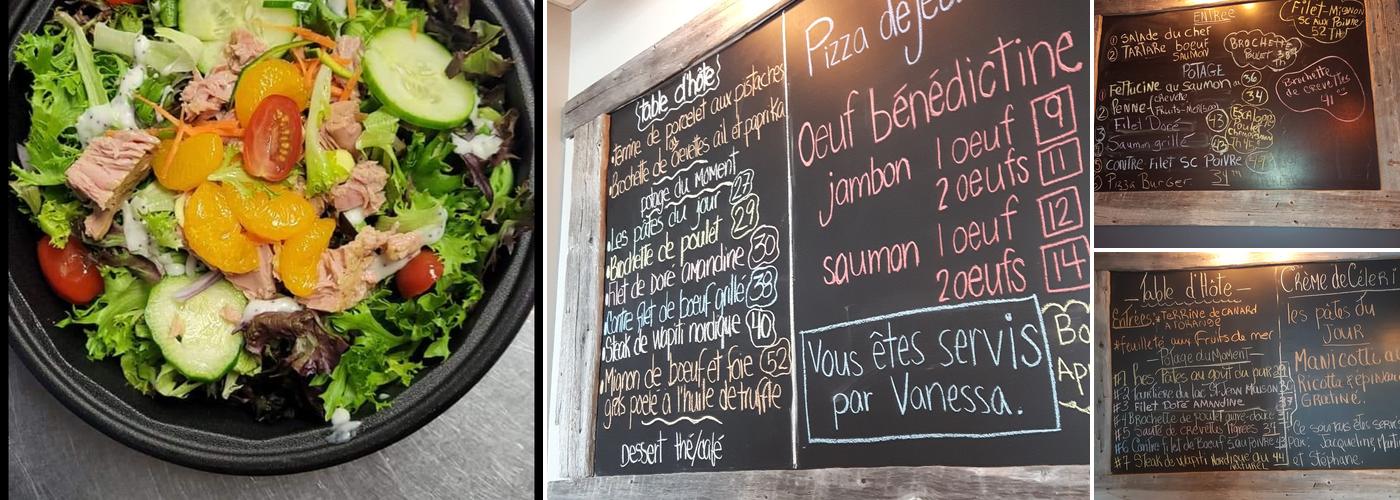 (table d'hôte)
•Terrine de porcelet aux pistaches
•Brochette de crevettes ail et paprika
potage du moment
•Les pâtes du jour 27
•Brochette de poulet 29
•Filet de doré amandine 30
•Contre filet de boeuf grillé 38
•Steak de wapiti nordique 40
•Mignon de boeuf et foie 52
gras poelé à l'huile de truffle
Dessert thé/café
Pizza déjeu
Oeuf bénédictine
jambon 1 oeuf 9
2 oeufs 11
saumon 1 oeuf 12
2 oeufs 14
Vous êtes servis
par Vanessa.
Bo
Ap
ENTRÉE
① Salade du chef
② Tartare boeuf
saumon
POTAGE
Fettucine au saumon 36
Penne crevette 34
Filet Doré 43
Saumon grillé 42
Contre Filet SC Poivre 49
Pizza Burger 34
Filet-Mignon
SC Aux Poivre
52 TH
Brochette
Poulet 38
TH
Brochette
de crevettes
41
Escalope
Poulet
Table d'Hôte
Entrées: *Terrine de canard
à l'orange
*feuilleté aux fruits de mer
Potage du Moment
#2 Tourtière du lac St Jean Maison
#3 Filet Doré Amandine
#4 Brochette de poulet aigre-douce
#5 Sauté de crevettes Tigrées
#6 Contre filet de Boeuf sau poivre
#7 Steak de Wapiti Nordique au 44
naturel
Crème de Céleri
les pâtes du
Jour
Manicotti
Ricotta épinard
Gratiné.
Ce sour vous êtes servi
Par: Jacqueline,
et Stéphane.